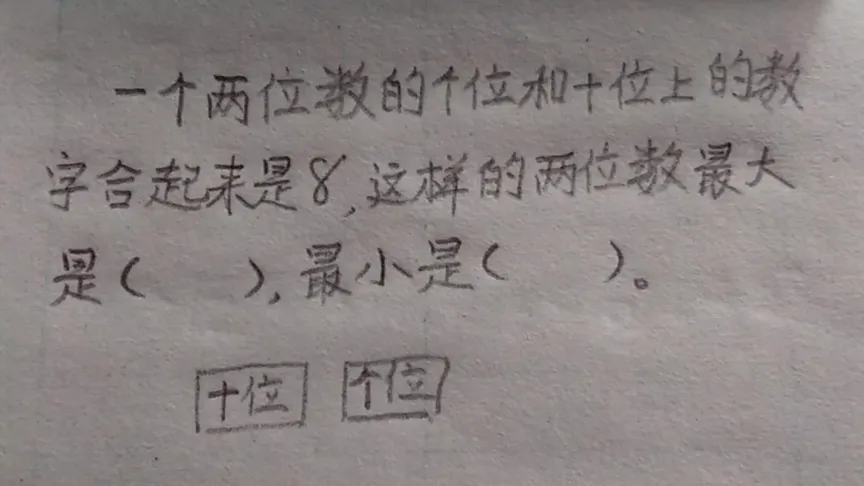 一个两位数的个位和十位上的数
字合起来是8,这样的两位数最大
是( ),最小是( )。
十位 个位